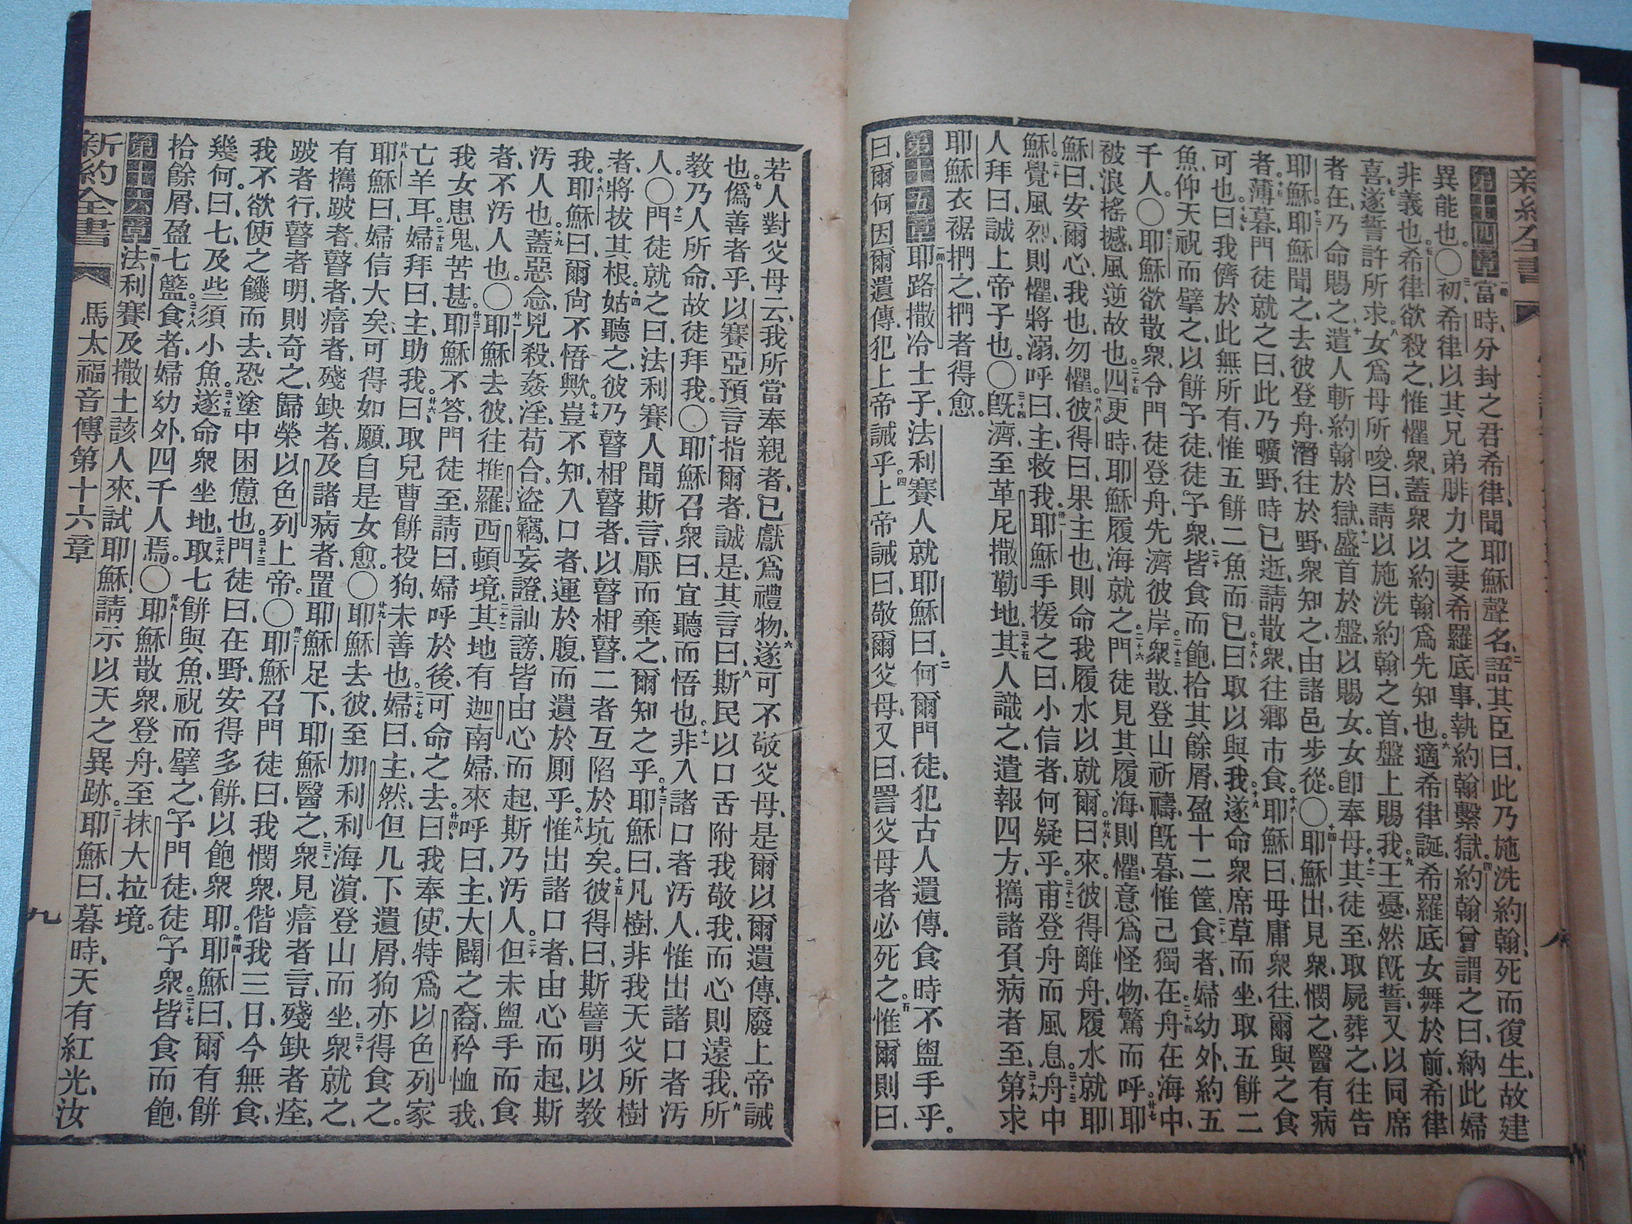 新約全書
第十四章 一節 當時分封之君希律聞耶穌聲名 二 語其臣曰此乃施洗約翰死而復生故建
異能也○三 初希律以其兄弟腓力之妻希羅底事執約翰繫獄 四 約翰曾謂之曰納此婦
非義也 五 希律欲殺之惟懼衆蓋衆以約翰爲先知也 六 適希律誕希羅底女舞於前希律
喜 七 遂誓許所求 八 女爲母所唆曰請以施洗約翰之首盤上賜我 九 王憂然旣誓又以同席
者在乃命賜之 十 遣人斬約翰於獄 十一 盛首於盤以賜女女卽奉母 十二 其徒至取屍葬之往告
耶穌 十三 耶穌聞之去彼登舟潛往於野衆知之由諸邑步從○十四 耶穌出見衆憫之醫有病
者 十五 薄暮門徒就之曰此乃曠野時已逝請散衆往鄉市食 十六 耶穌曰毋庸衆往爾與之食
可也 十七 曰我儕於此無所有惟五餅二魚而已 十八 曰取以與我 十九 遂命衆席草而坐取五餅二
魚仰天祝而擘之以餅予徒徒予衆 二十 皆食而飽拾其餘屑盈十二筐 二十一 食者婦幼外約五
千人○二十二 耶穌欲散衆令門徒登舟先濟彼岸 二十三 衆散登山祈禱旣暮惟己獨在 二十四 舟在海中
被浪搖撼風逆故也 二十五 四更時耶穌履海就之 二十六 門徒見其履海則懼意爲怪物驚而呼 廿七 耶
穌曰安爾心我也勿懼 廿八 彼得曰果主也則命我履水以就爾 廿九 曰來彼得離舟履水就耶
穌 三十 覺風烈則懼將溺呼曰主救我 卅一 耶穌手援之曰小信者何疑乎 三十二 甫登舟而風息 三十三 舟中
人拜曰誠上帝子也○三十四 旣濟至革尼撒勒地 三十五 其人識之遣報四方攜諸負病者至 三十六 第求
耶穌衣裾捫之捫者得愈
第十五章 一節 耶路撒冷士子法利賽人就耶穌曰 二 何爾門徒犯古人遺傳食時不盥手乎
三 曰爾何因爾遺傳犯上帝誡乎 四 上帝誡曰敬爾父母又曰詈父母者必死之 五 惟爾則曰
若人對父母云我所當奉親者已獻爲禮物 六 遂可不敬父母是爾以爾遺傳廢上帝誡
也 七 僞善者乎以賽亞預言指爾者誠是其言曰 八 斯民以口舌附我敬我而心則遠我 九 所
教乃人所命故徒拜我○十 耶穌召衆曰宜聽而悟也 十一 非入諸口者汚人惟出諸口者汚
人○十二 門徒就之曰法利賽人聞斯言厭而棄之爾知之乎 十三 耶穌曰凡樹非我天父所樹
者將拔其根 十四 姑聽之彼乃瞽相瞽者以瞽相瞽二者互陷於坑矣 十五 彼得曰斯譬明以教
我 十六 耶穌曰爾尙不悟歟 十七 豈不知入口者運於腹而遺於厠乎 十八 惟出諸口者由心而起斯
汚人也 十九 蓋惡念兇殺姦淫苟合盜竊妄證訕謗皆由心而起 二十 斯乃汚人但未盥手而食
者不汚人也○廿一 耶穌去彼往推羅西頓境 二十二 其地有迦南婦來呼曰主大闢之裔矜恤我
我女患鬼苦甚 廿三 耶穌不答門徒至請曰婦呼於後可命之去 廿四 曰我奉使特爲以色列家
亡羊耳 二十五 婦拜曰主助我 廿六 曰取兒曹餅投狗未善也 二十七 婦曰主然但几下遺屑狗亦得食之
廿八 耶穌曰婦信大矣可得如願自是女愈○廿九 耶穌去彼至加利利海濱登山而坐 三十 衆就之
有攜跛者瞽者瘖者殘缺者及諸病者置耶穌足下耶穌醫之 三十一 衆見瘖者言殘缺者痊
跛者行瞽者明則奇之歸榮以色列上帝○卅二 耶穌召門徒曰我憫衆偕我三日今無食
我不欲使之饑而去恐塗中困憊也 三十三 門徒曰在野安得多餅以飽衆 卅四 耶穌曰爾有餅
幾何曰七及些須小魚 三十五 遂命衆坐地 三十六 取七餅與魚祝而擘之予門徒徒予衆 三十七 皆食而飽
拾餘屑盈七籃 三十八 食者婦幼外四千人焉○卅九 耶穌散衆登舟至抹大拉境
第十六章 一節 法利賽及撒土該人來試耶穌請示以天之異跡 二 耶穌曰暮時天有紅光汝
新約全書 馬太福音傳第十六章 九